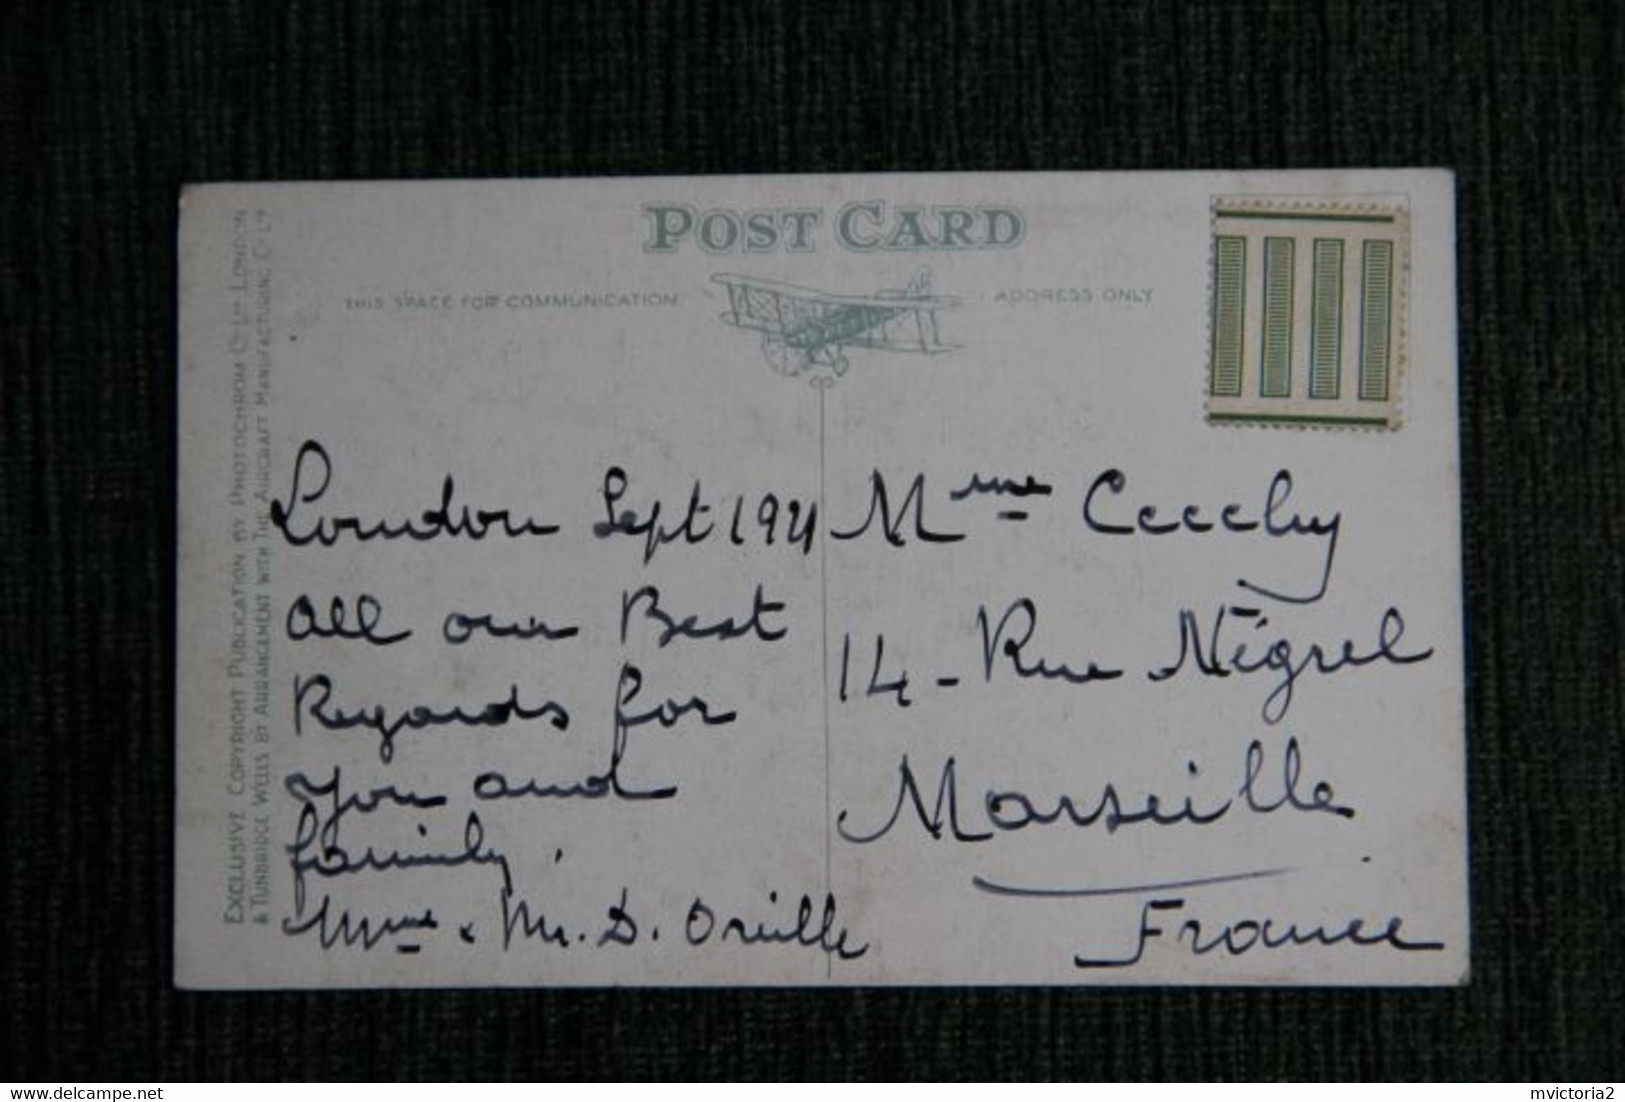 POST CARD
THIS SPACE FOR COMMUNICATION
ADDRESS ONLY
EXCLUSIVE COPYRIGHT PUBLICATION BY PHOTOCHROM Co Ltd LONDON
& TUNBRIDGE WELLS BY ARRANGEMENT WITH THE AIRCRAFT MANUFACTURING Co Ld
London Sept 1921
All our Best
Regards for
you and
family.
Mme & Mr. D. Oreille
Mme
14 - Rue Négrel
Marseille
France
delcampe.net
mvictoria2